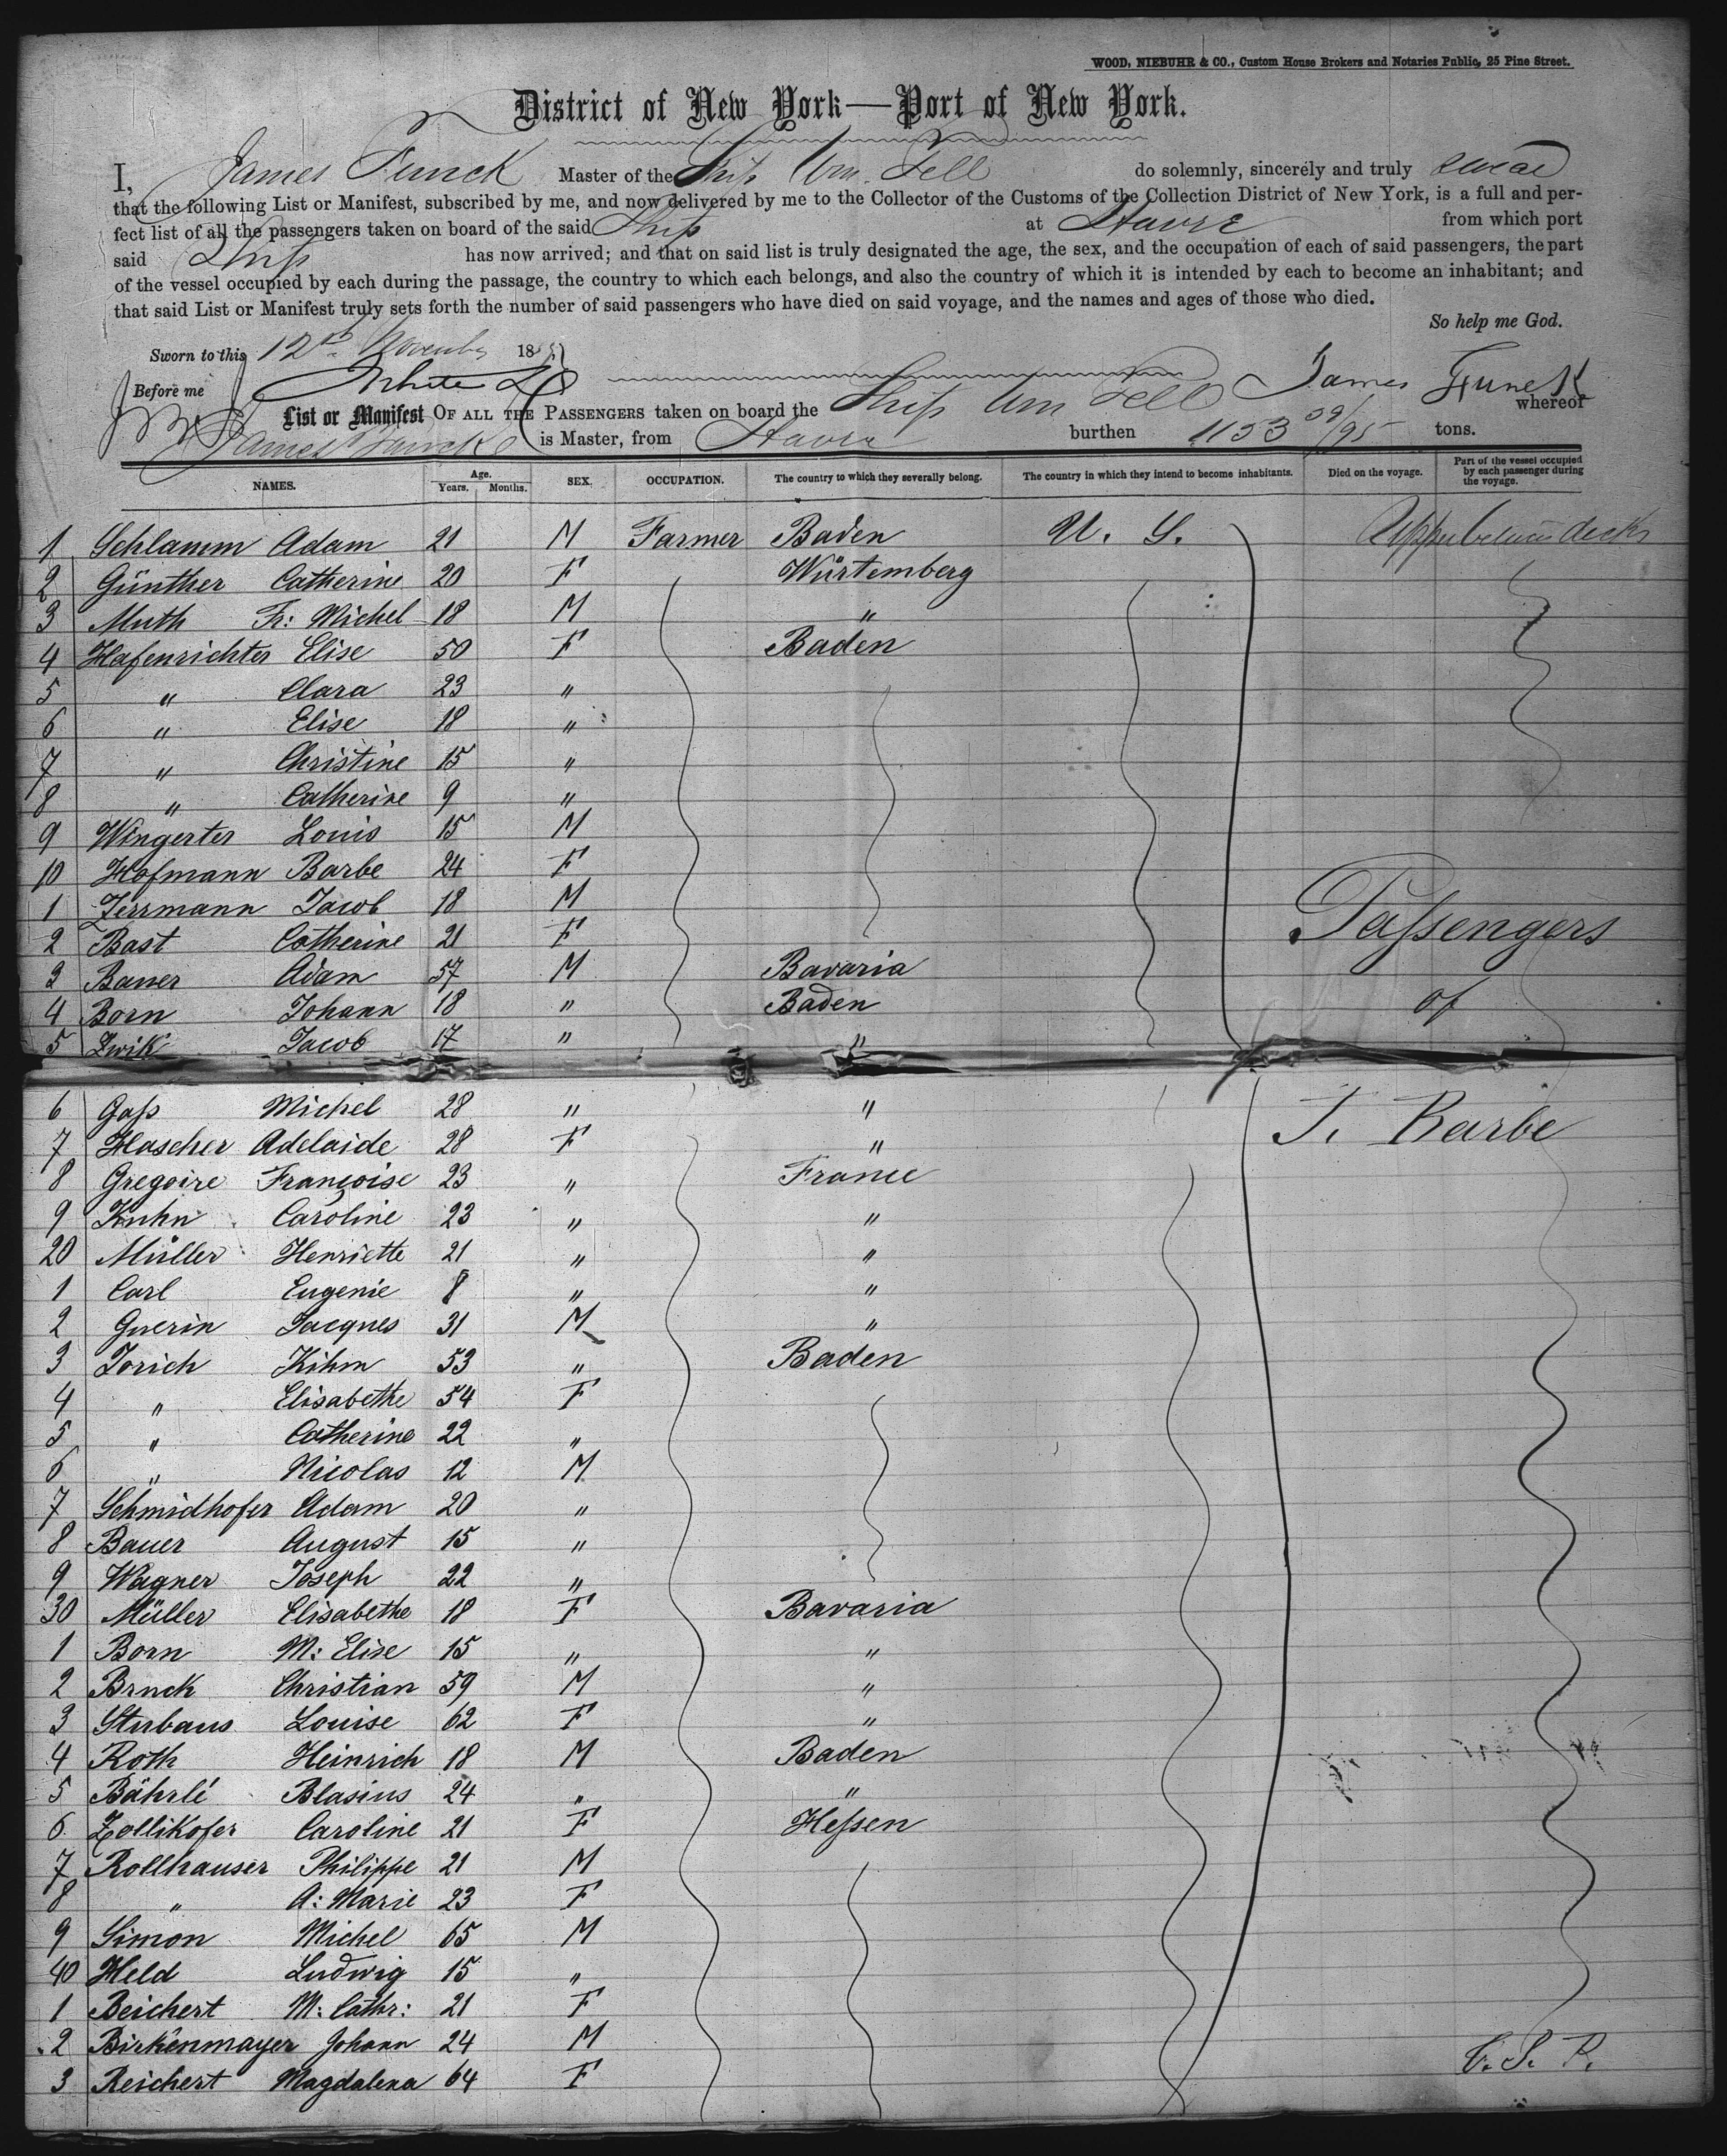 WOOD, NIEBUHR & CO., Custom House Brokers and Notaries Public, 25 Pine Street.
District of New York—Port of New York.
I, James Funck Master of the Ship Wm. Tell do solemnly, sincerely and truly swear
that the following List or Manifest, subscribed by me, and now delivered by me to the Collector of the Customs of the Collection District of New York, is a full and per-
fect list of all the passengers taken on board of the said Ship at Havre from which port
said Ship has now arrived; and that on said list is truly designated the age, the sex, and the occupation of each of said passengers, the part
of the vessel occupied by each during the passage, the country to which each belongs, and also the country of which it is intended by each to become an inhabitant; and
that said List or Manifest truly sets forth the number of said passengers who have died on said voyage, and the names and ages of those who died.
So help me God.
Sworn to this 12th November 18
Before me James Funck
List or Manifest OF ALL THE PASSENGERS taken on board the Ship Wm Tell whereof
James Funck is Master, from Havre burthen 1153 09/95 tons.
NAMES. Age. Years. Months. SEX. OCCUPATION. The country to which they severally belong. The country in which they intend to become inhabitants. Died on the voyage. Part of the vessel occupied by each passenger during the voyage.
1 Schlamm Adam 21 M Farmer Baden U. S. Upper between decks
2 Günther Catherine 20 F Würtemberg
3 Muth Fr: Michel 18 M "
4 Hafenrichter Elise 50 F Baden
5 " Clara 23 "
6 " Elise 18 "
7 " Christine 15 "
8 " Catherine 9 "
9 Wingerter Louis 15 M
10 Hofmann Barbe 24 F
1 Zerrmann Jacob 18 M Passengers
2 Bast Catherine 21 F
3 Bauer Adam 57 M Bavaria
4 Born Johann 18 " Baden of
5 Zwik Jacob 17 " "
6 Gaß Michel 28 " " J. Barbe
7 Hascher Adelaide 28 F "
8 Gregoire Françoise 23 " France
9 Kuhn Caroline 23 " "
20 Müller Henriette 21 " "
1 Carl Eugenie 8 " "
2 Guerin Jacques 31 M "
3 Jorich Kihm 53 " Baden
4 " Elisabethe 54 F
5 " Catherine 22 "
6 " Nicolas 12 M
7 Schmidhofer Adam 20 "
8 Bauer August 15 "
9 Wagner Joseph 22 "
30 Müller Elisabethe 18 F Bavaria
1 Born M: Elise 15 " "
2 Bruck Christian 59 M "
3 Stubaus Louise 62 F "
4 Roth Heinrich 18 M Baden
5 Bährlé Blasius 24 " "
6 Zollikofer Caroline 21 F Heßen
7 Rollhauser Philippe 21 M
8 " A: Marie 23 F
9 Simon Michel 65 M
40 Held Ludwig 15 "
1 Beichert M: Cathr: 21 F
2 Birkenmayer Johann 24 M
3 Reichert Magdalena 64 F C. S. P.